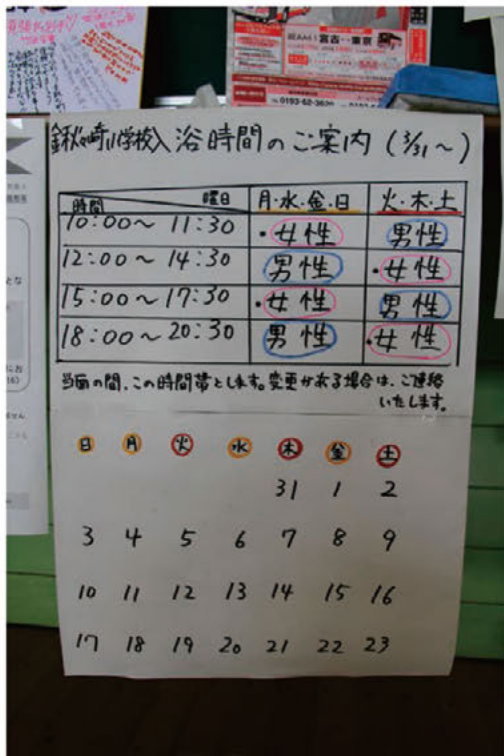 宮古⇔東京
0193-62-3620
鍬ヶ崎小学校入浴時間のご案内(3/31~)
時間 曜日 月・水・金・日 火・木・土
10:00~11:30 ・女性 男性
12:00~14:30 男性 ・女性
15:00~17:30 ・女性 男性
18:00~20:30 男性 ・女性
当面の間、この時間帯とします。変更がある場合は、ご連絡
いたします。
日 月 火 水 木 金 土
31 1 2
3 4 5 6 7 8 9
10 11 12 13 14 15 16
17 18 19 20 21 22 23